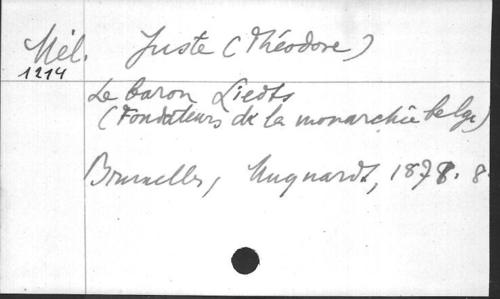 Mél. Juste (Théodore)
1214
Le baron Liedts
(Fondateurs de la monarchie belge)
Bruxelles, Muquardt, 1878. 8.